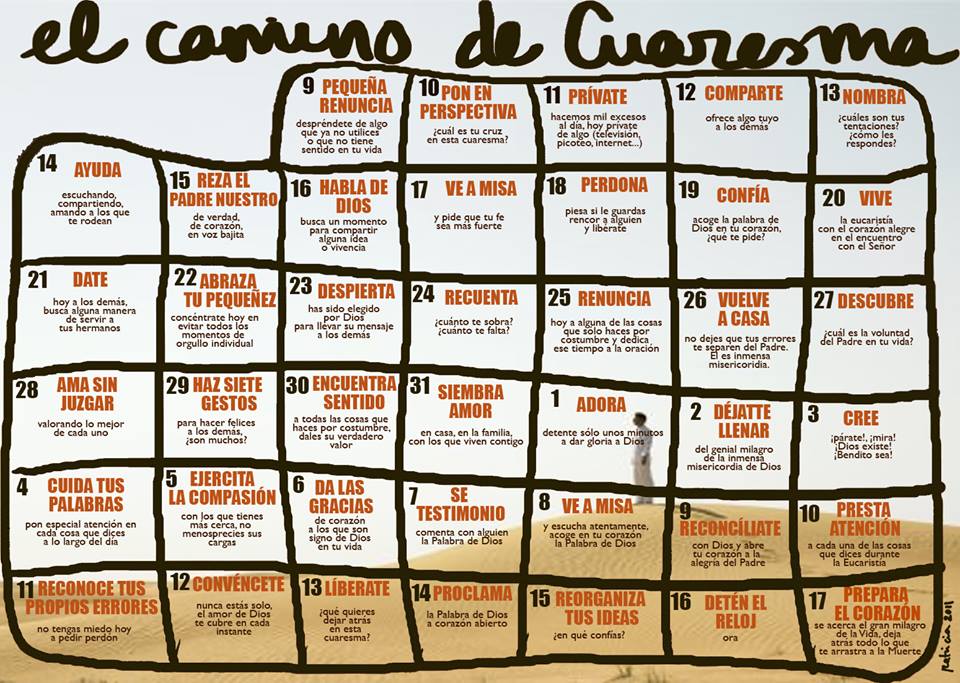 el camino de Cuaresma
9 PEQUEÑA
RENUNCIA
despréndete de algo
que ya no utilices
o que no tiene
sentido en tu vida
10 PON EN
PERSPECTIVA
¿cuál es tu cruz
en esta cuaresma?
11 PRÍVATE
hacemos mil excesos
al día, hoy prívate
de algo (televisión,
picoteo, internet...)
12 COMPARTE
ofrece algo tuyo
a los demás
13 NOMBRA
¿cuáles son tus
tentaciones?
¿cómo les
respondes?
14 AYUDA
escuchando,
compartiendo,
amando a los que
te rodean
15 REZA EL
PADRE NUESTRO
de verdad,
de corazón,
en voz bajita
16 HABLA DE
DIOS
busca un momento
para compartir
alguna idea
o vivencia
17 VE A MISA
y pide que tu fe
sea más fuerte
18 PERDONA
piesa si le guardas
rencor a alguien
y libérate
19 CONFÍA
acoge la palabra de
Dios en tu corazón,
¿qué te pide?
20 VIVE
la eucaristía
con el corazón alegre
en el encuentro
con el Señor
21 DATE
hoy a los demás,
busca alguna manera
de servir a
tus hermanos
22 ABRAZA
TU PEQUEÑEZ
concéntrate hoy en
evitar todos los
momentos de
orgullo individual
23 DESPIERTA
has sido elegido
por Dios
para llevar su mensaje
a los demás
24 RECUENTA
¿cuánto te sobra?
¿cuánto te falta?
25 RENUNCIA
hoy a alguna de las cosas
que sólo haces por
costumbre y dedica
ese tiempo a la oración
26 VUELVE
A CASA
no dejes que tus errores
te separen del Padre.
Él es inmensa
misericoridia.
27 DESCUBRE
¿cuál es la voluntad
del Padre en tu vida?
28 AMA SIN
JUZGAR
valorando lo mejor
de cada uno
29 HAZ SIETE
GESTOS
para hacer felices
a los demás,
¿son muchos?
30 ENCUENTRA
SENTIDO
a todas las cosas que
haces por costumbre,
dales su verdadero
valor
31 SIEMBRA
AMOR
en casa, en la familia,
con los que viven contigo
1 ADORA
detente sólo unos minutos
a dar gloria a Dios
2 DÉJATTE
LLENAR
del genial milagro
de la inmensa
misericordia de Dios
3 CREE
¡párate!, ¡mira!
¡Dios existe!
¡Bendito sea!
4 CUIDA TUS
PALABRAS
pon especial atención en
cada cosa que dices
a lo largo del día
5 EJERCITA
LA COMPASIÓN
con los que tienes
más cerca, no
menosprecies sus
cargas
6 DA LAS
GRACIAS
de corazón
a los que son
signo de Dios
en tu vida
7 SE
TESTIMONIO
comenta con alguien
la Palabra de Dios
8 VE A MISA
y escucha atentamente,
acoge en tu corazón
la Palabra de Dios
9
RECONCÍLIATE
con Dios y abre
tu corazón a la
alegría del Padre
10 PRESTA
ATENCIÓN
a cada una de las cosas
que dices durante
la Eucaristía
11 RECONOCE TUS
PROPIOS ERRORES
no tengas miedo hoy
a pedir perdon
12 CONVÉNCETE
nunca estás solo,
el amor de Dios
te cubre en cada
instante
13 LÍBERATE
¿qué quieres
dejar atrás
en esta
cuaresma?
14 PROCLAMA
la Palabra de Dios
a corazón abierto
15 REORGANIZA
TUS IDEAS
¿en qué confías?
16 DETÉN EL
RELOJ
ora
17 PREPARA
EL CORAZÓN
se acerca el gran milagro
de la Vida, deja
atrás todo lo que
te arrastra a la Muerte
patricia 2011